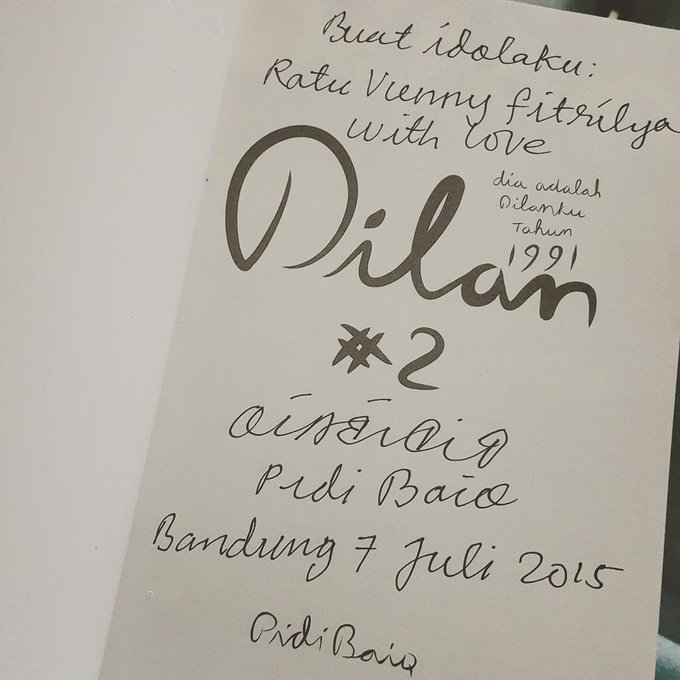 Buat idolaku:
Ratu Vienny fitrilya
with love
Dilan
dia adalah
Dilanku
Tahun
1991
#2
Pidi Baiq
Bandung 7 Juli 2015
Pidi Baiq